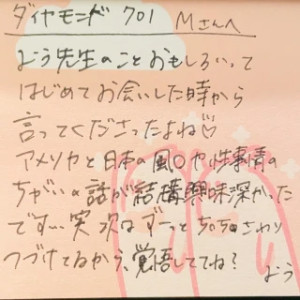 ダイヤモンド 701 Mさんへ
よう先生のことおもしろいって
はじめてお会いした時から
言ってくださったよね♡
アメリカと日本の風〇や性事情の
ちがいの話が結構興味深かった
です…実次はずーっとちっちさわり
つづけてるから、覚悟しててね?
よう